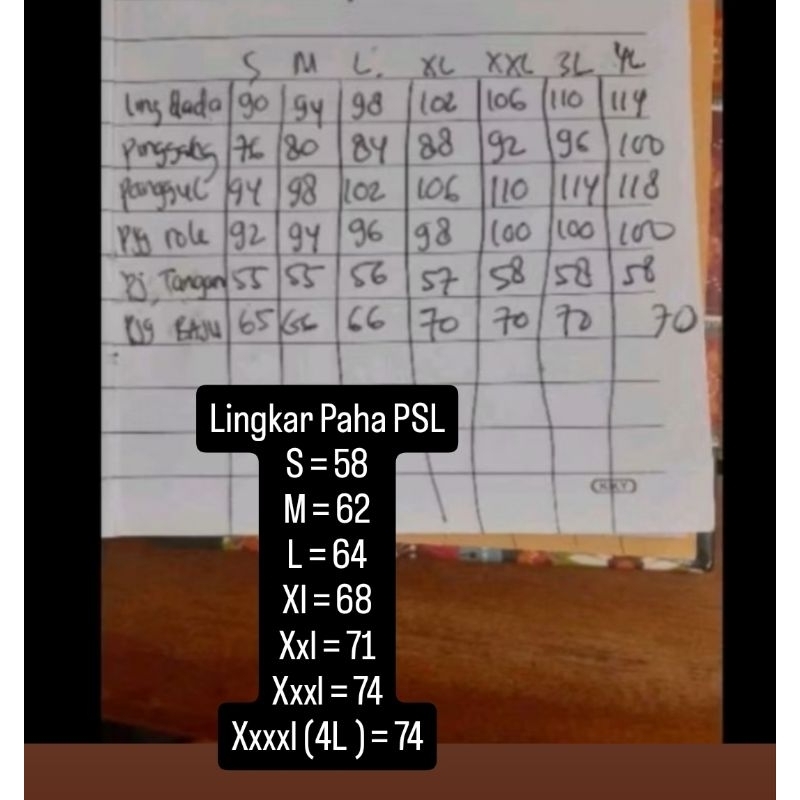 S M L. XL XXL 3L 4L
Ling dada 90 94 98 102 106 110 114
Pinggang 76 80 84 88 92 96 100
Panggul 94 98 102 106 110 114 118
Pjg role 92 94 96 98 100 100 100
Pj, Tangan 55 55 56 57 58 58 58
Pjg BAJU 65 66 66 70 70 70 70
Lingkar Paha PSL
S = 58
M = 62
L = 64
Xl = 68
Xxl = 71
Xxxl = 74
Xxxxl (4L ) = 74